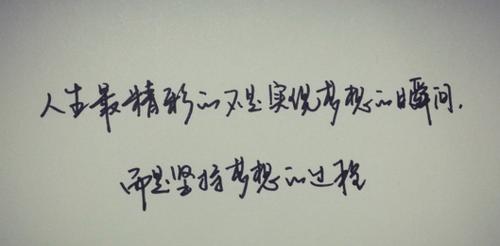 人生最精彩的不是实现梦想的瞬间，
而是坚持梦想的过程